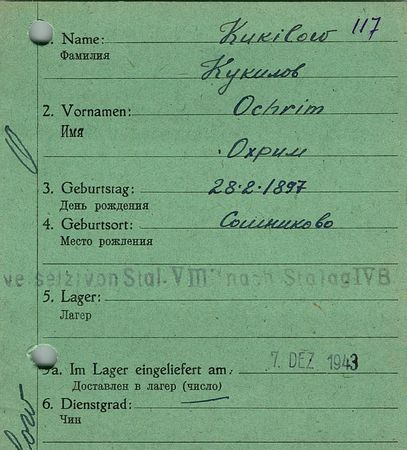 1. Name: Kukilow 117
Фамилия
Кукилов
2. Vornamen: Ochrim
Имя
Охрим
3. Geburtstag: 28.2.1897
День рождения
4. Geburtsort: Сошниково
Место рождения
versetzt von Stal. VIII nach Stalag IV B
5. Lager:
Лагер
5a. Im Lager eingeliefert am: 7. DEZ 1943
Доставлен в лагер (число)
6. Dienstgrad:
Чин